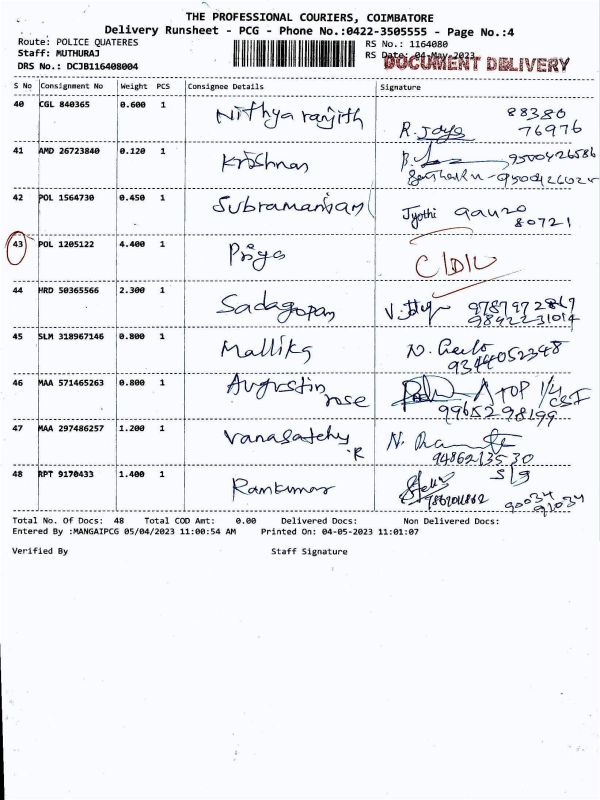 THE PROFESSIONAL COURIERS, COIMBATORE
Delivery Runsheet - PCG - Phone No.:0422-3505555 - Page No.:4
Route: POLICE QUATERES
RS No.: 1164080
Staff: MUTHURAJ
RS Date: 04-May-2023
DOCUMENT DELIVERY
DRS No.: DCJB116408004
S No Consignment No Weight PCS Consignee Details Signature
40 CGL 840365 0.600 1 Nithya ranjith 88380
R. Jaya 76976
41 AMD 26723840 0.120 1 Krishnan 9500426586
9500426025
42 POL 1564730 0.450 1 Subramaniam Jyothi
80721
43 POL 1205122 4.400 1 Priya
44 HRD 50365566 2.300 1 Sadagopan
9842231014
45 SLM 318967146 0.800 1 Mallika
9344052348
46 MAA 571465263 0.800 1 Augustin rose A TOP 1/4
CSI
9965298199
47 MAA 297486257 1.200 1 N.
9486213530
48 RPT 9170433 1.400 1 Ramkumar
90034
91034
Total No. Of Docs: 48 Total COD Amt: 0.00 Delivered Docs: Non Delivered Docs:
Entered By :MANGAIPCG 05/04/2023 11:00:54 AM Printed On: 04-05-2023 11:01:07
Verified By Staff Signature